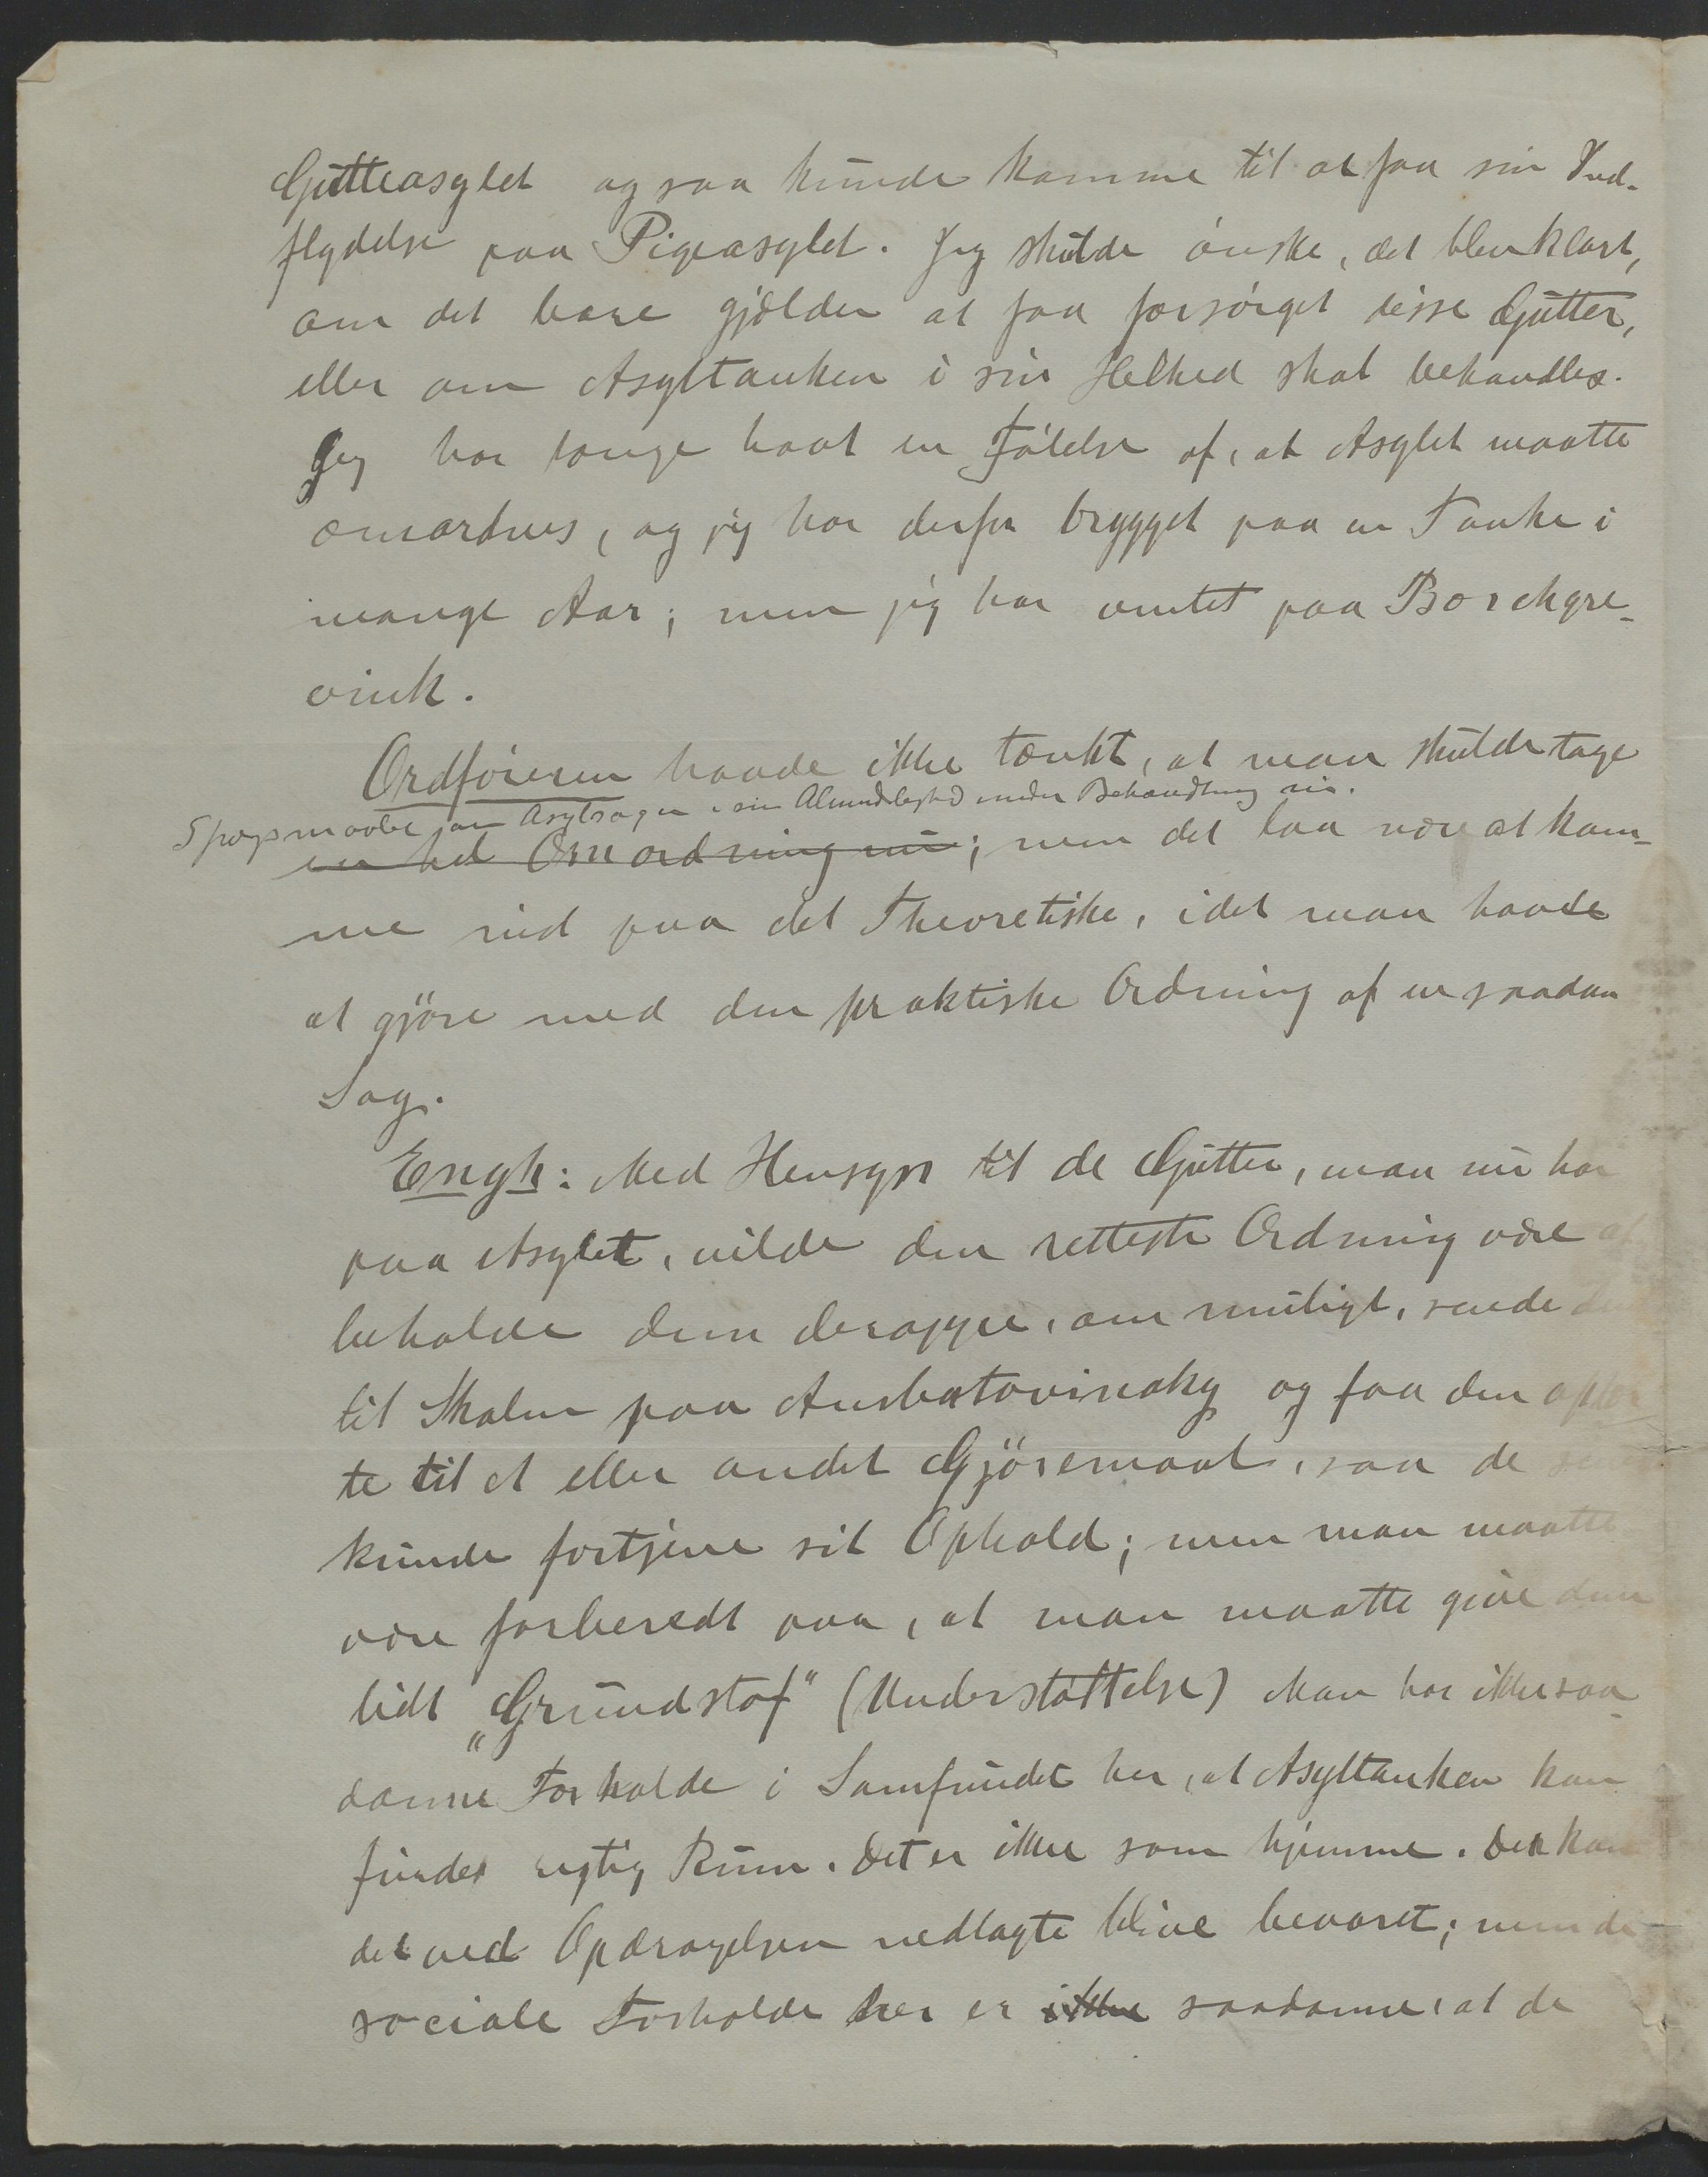 Gutteasylet og saa kunde komme til at faa sin Ind-
flydelse paa Pigeasylet. Jeg skulde ønske, det blev klart,
om det bare gjælder at faa forsørget disse Gutter,
eller om Asyltanken i sin Helhed skal behandles.
Jeg har længe havt en Følelse af, at Asylet maatte
omordnes, og jeg har derfor brygget paa en Tanke i
mange Aar; men jeg har ventet paa Borchgre-
vink.
Ordføreren havde ikke tænkt, at man skulde tage
Spørgsmaalet om Asylsagen i sin Almindelighed under Behandling nu.
en hel Omordning nu; men det laa nær at kom-
me ind paa det Theoretiske, idet man havde
at gjøre med den praktiske Ordning af en saadan
Sag.
Engh: Med Hensyn til de Gutter, man nu har
paa Asylet, vilde den retteste Ordning være at
beholde dem deroppe, om muligt, sende
til Skolen paa Ambatovinaky og faa dem
te til et eller andet Gjøremaal, saa de
kunde fortjene sit Ophold; men man maatte
være forberedt paa, at man maatte give dem
lidt "Grundstof" (Understøttelse) Man har ikke saa-
danne Forholde i Samfundet her, at Asyltanken kan
finder rigtig Rum. Det er ikke som hjemme. Der kan
det ved Opdragelsen nedlagte blive bevaret; men de
sociale Forholde her er ikke saadanne, at de